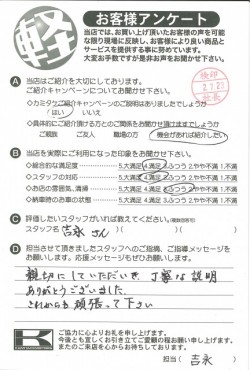 軽
お客様アンケート
当店では、お買い上げ頂いたお客様の声を可能
な限り現場に反映し、お客様により良い商品と
サービスを提供する事に努めています。
大変お手数ですが是非お声をお聞かせ下さい。
検印
2.7.21
A 当店はご紹介を大切にしております。
ご紹介キャンペーンについてお聞きします。
◇カミタケご紹介キャンペーンのご説明はありましたでしょうか
はい いいえ
◇具体的にご紹介頂ける方とのご関係をお聞かせ頂けますでしょうか
ご親族 ご友人 職場の方 機会があれば紹介したい
B 当店を実際にご利用になった印象をお聞かせ下さい。
◇総合的な満足度 5.大満足 4.満足 3.ふつう 2.やや不満 1.不満
◇スタッフの対応 5.大満足 4.満足 3.ふつう 2.やや不満 1.不満
◇お店の雰囲気、清掃 5.大満足 4.満足 3.ふつう 2.やや不満 1.不満
◇納車時のお車の状態 5.大満足 4.満足 3.ふつう 2.やや不満 1.不満
C 評価したいスタッフがいれば教えてください。(複数回答可)
スタッフ名 吉永さん
D 担当させて頂きましたスタッフへのご指摘、ご指導メッセージをお
願いします。応援メッセージもぜひお願いします。
親切にしていただいき、丁寧な説明
ありがとうございました。
これからも頑張って下さい
K
ご協力に心よりお礼を申し上げます。
今後とも宜しくお引き立てご愛顧お願い申し上げます。
またのご来店を心からお待ちしております。
担当( 吉永 )